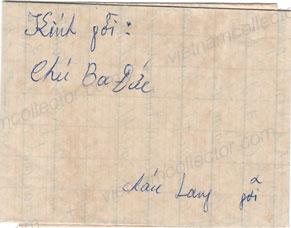 Kính gởi:
Chú Ba Đức
Cháu Lang gởi
vietnamcollector.com